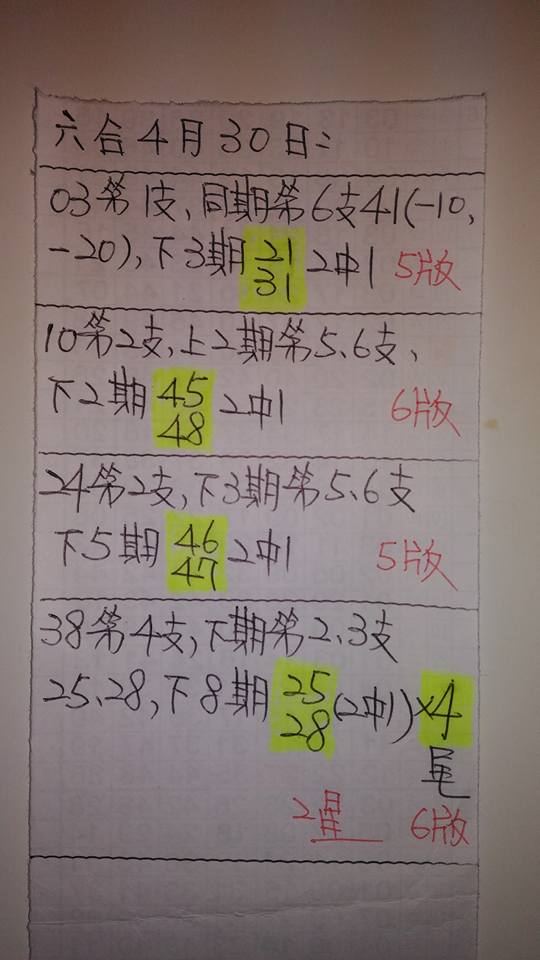 六合4月30日:
03第1支、同期第6支41(-10,
-20),下3期21 2中1 5版
31
10第2支,上2期第5、6支、
下2期45 2中1 6版
48
24第2支,下3期第5、6支
下5期46 2中1 5版
47
38第4支,下期第2、3支
25、28,下8期25(2中1)×4
28 尾
2星 6版